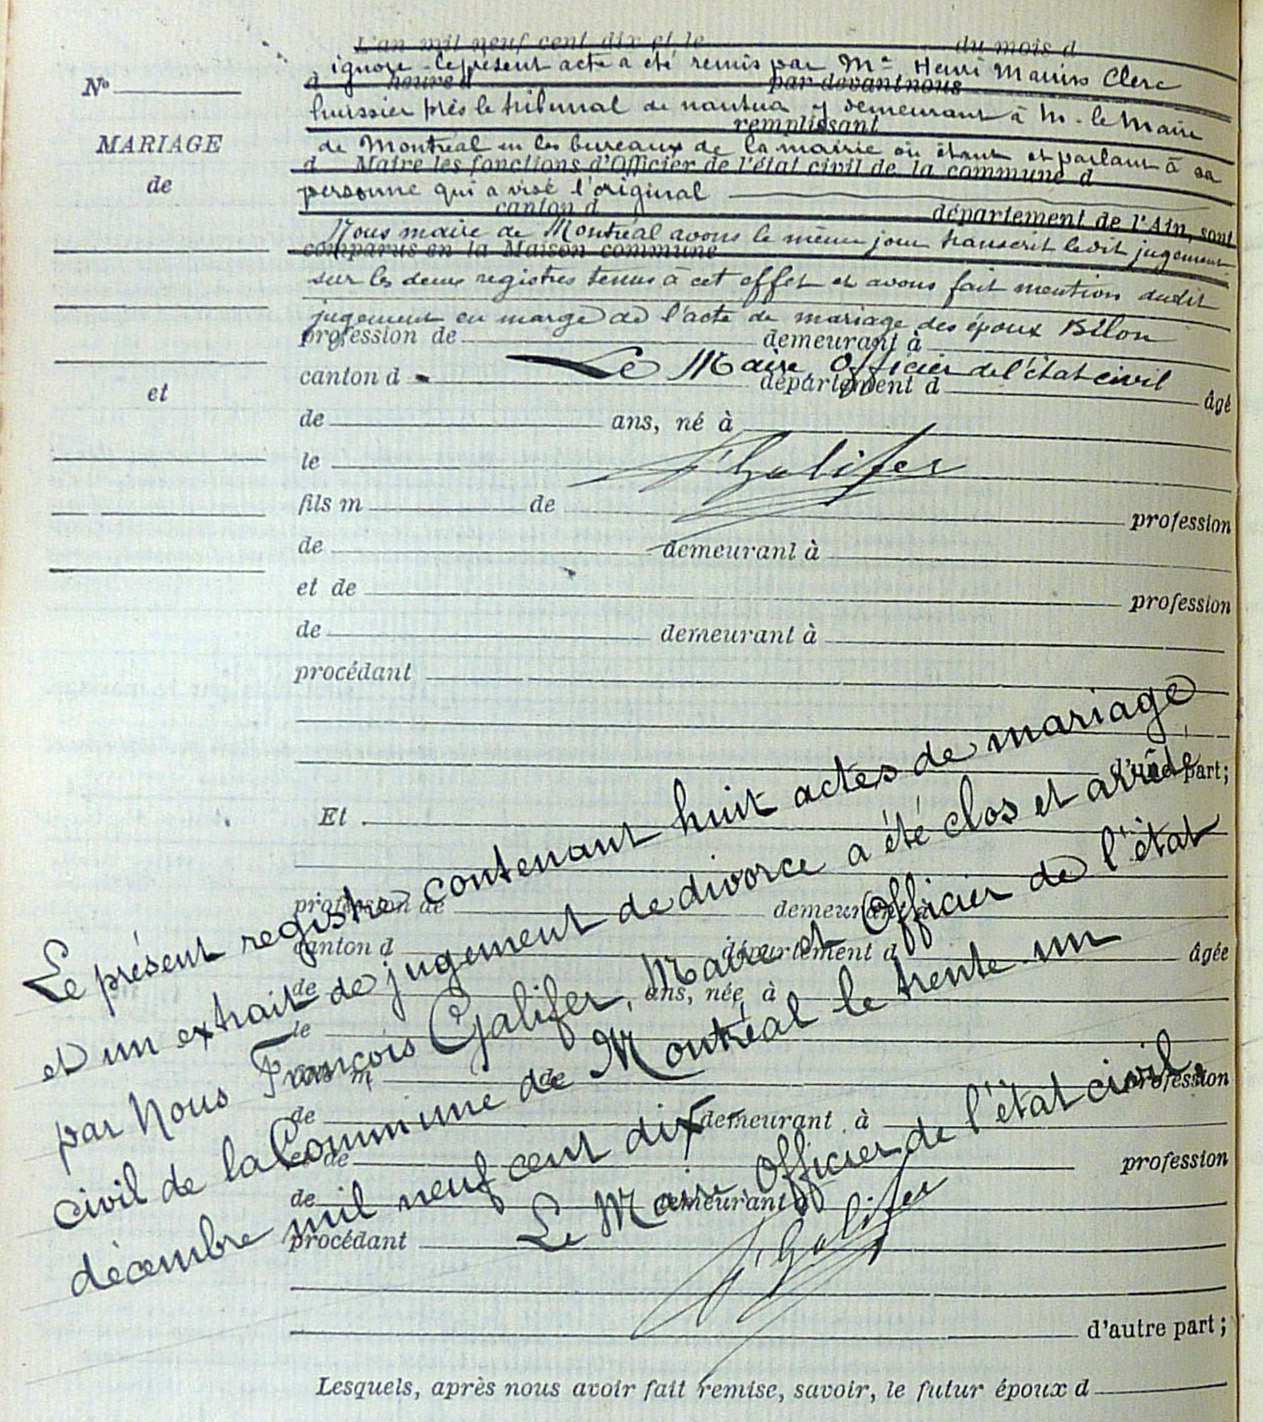 L'an mil neuf cent dix et le du mois d
ignore. Le présent acte a été remis par Me Henri Marius Clerc
à heure d par-devant nous
huissier près le tribunal de Nantua y demeurant à M. le Maire
remplissant
de Montréal en les bureaux de la mairie où étant et parlant à sa
d Maire les fonctions d'Officier de l'état civil de la commune d
personne qui a visé l'original
canton d département de l'Ain, sont
Nous maire de Montréal avons le même jour transcrit ledit jugement
comparus en la Maison commune
sur les deux registres tenus à cet effet et avons fait mention dudit
jugement en marge de l'acte de mariage des époux Bilon
No
MARIAGE
de
et
profession de demeurant à
Le Maire, Officier de l'état civil
canton d département d âgé
de ans, né à
le
F Galifer
fils m de profession
de demeurant à
et de profession
de demeurant à
procédant
d'une part;
Et
profession de demeurant à
canton d département d âgée
de ans, née à
le
m de profession
de demeurant à
et de profession
de demeurant à
procédant
Le présent registre contenant huit actes de mariage
et un extrait de jugement de divorce a été clos et arrêté
par Nous François Galifer, Maire et Officier de l'état
civil de la Commune de Montréal le trente-un
décembre mil neuf cent dix
Le Maire, Officier de l'état civil,
F Galifer
d'autre part;
Lesquels, après nous avoir fait remise, savoir, le futur époux d